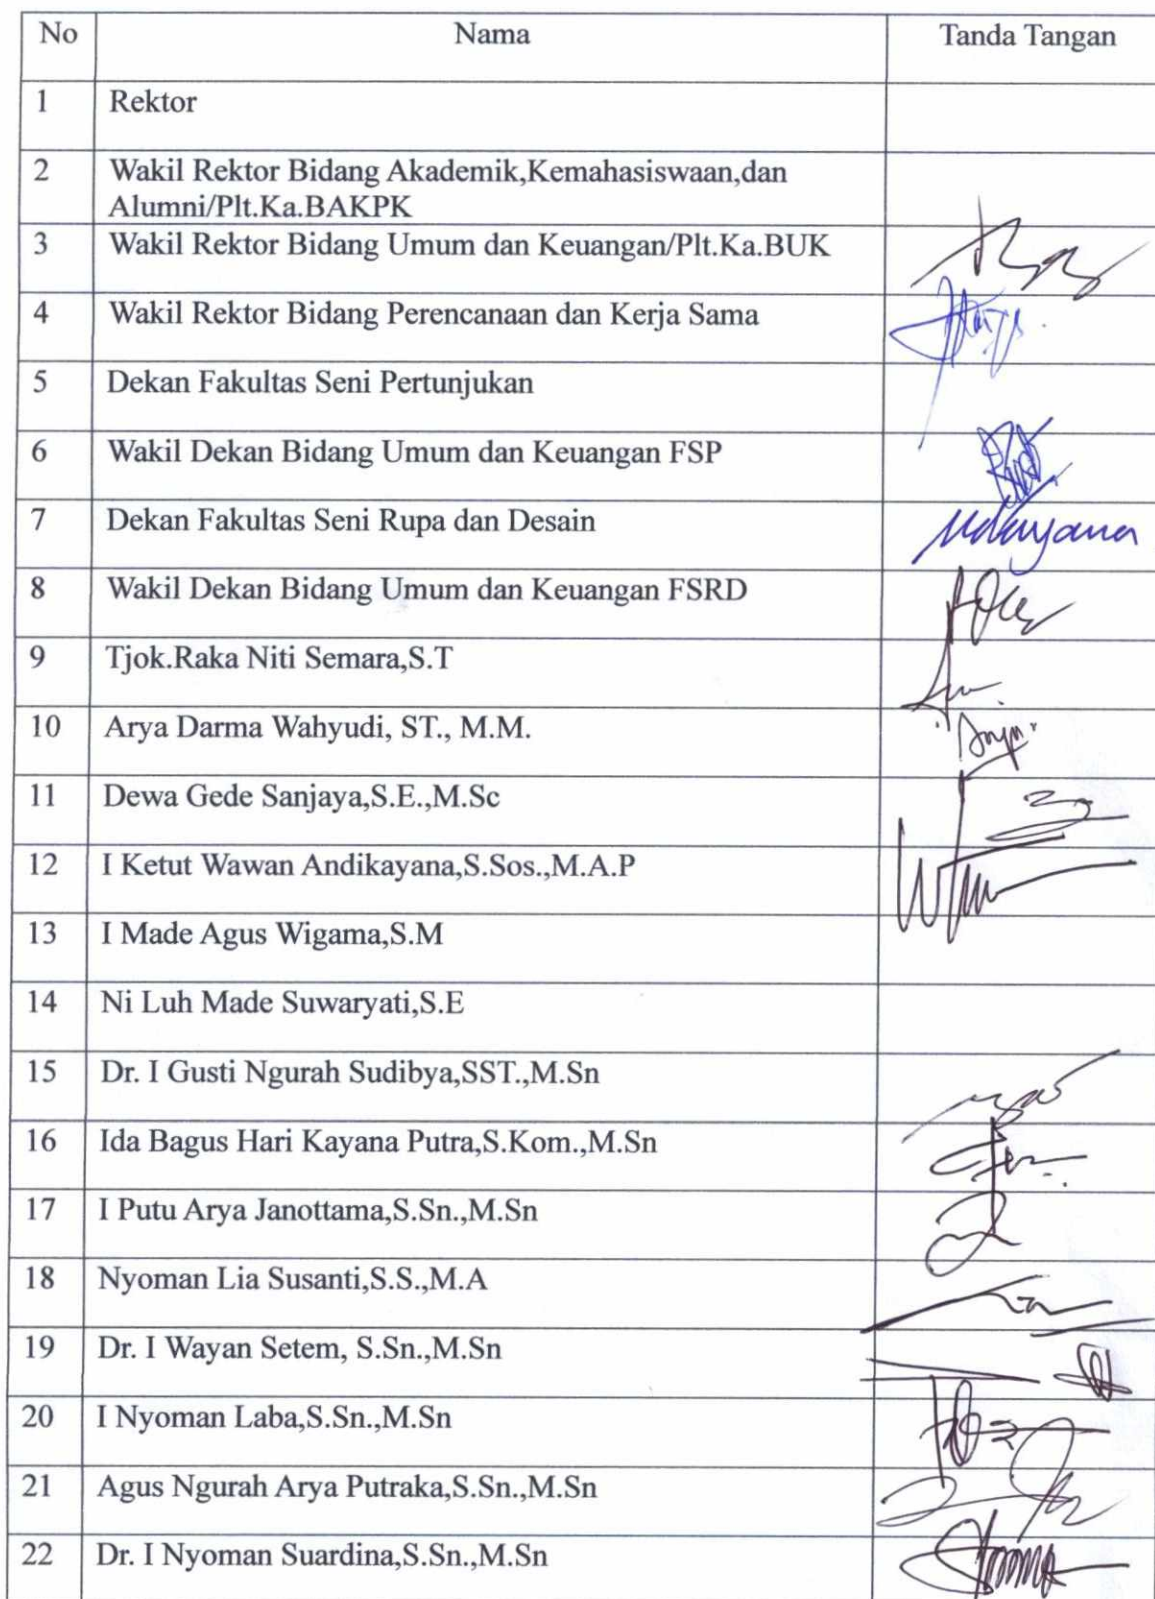 No Nama Tanda Tangan
1 Rektor
2 Wakil Rektor Bidang Akademik,Kemahasiswaan,dan
Alumni/Plt.Ka.BAKPK
3 Wakil Rektor Bidang Umum dan Keuangan/Plt.Ka.BUK
4 Wakil Rektor Bidang Perencanaan dan Kerja Sama
5 Dekan Fakultas Seni Pertunjukan
6 Wakil Dekan Bidang Umum dan Keuangan FSP
7 Dekan Fakultas Seni Rupa dan Desain
8 Wakil Dekan Bidang Umum dan Keuangan FSRD
9 Tjok.Raka Niti Semara,S.T
10 Arya Darma Wahyudi, ST., M.M.
11 Dewa Gede Sanjaya,S.E.,M.Sc
12 I Ketut Wawan Andikayana,S.Sos.,M.A.P
13 I Made Agus Wigama,S.M
14 Ni Luh Made Suwaryati,S.E
15 Dr. I Gusti Ngurah Sudibya,SST.,M.Sn
16 Ida Bagus Hari Kayana Putra,S.Kom.,M.Sn
17 I Putu Arya Janottama,S.Sn.,M.Sn
18 Nyoman Lia Susanti,S.S.,M.A
19 Dr. I Wayan Setem, S.Sn.,M.Sn
20 I Nyoman Laba,S.Sn.,M.Sn
21 Agus Ngurah Arya Putraka,S.Sn.,M.Sn
22 Dr. I Nyoman Suardina,S.Sn.,M.Sn